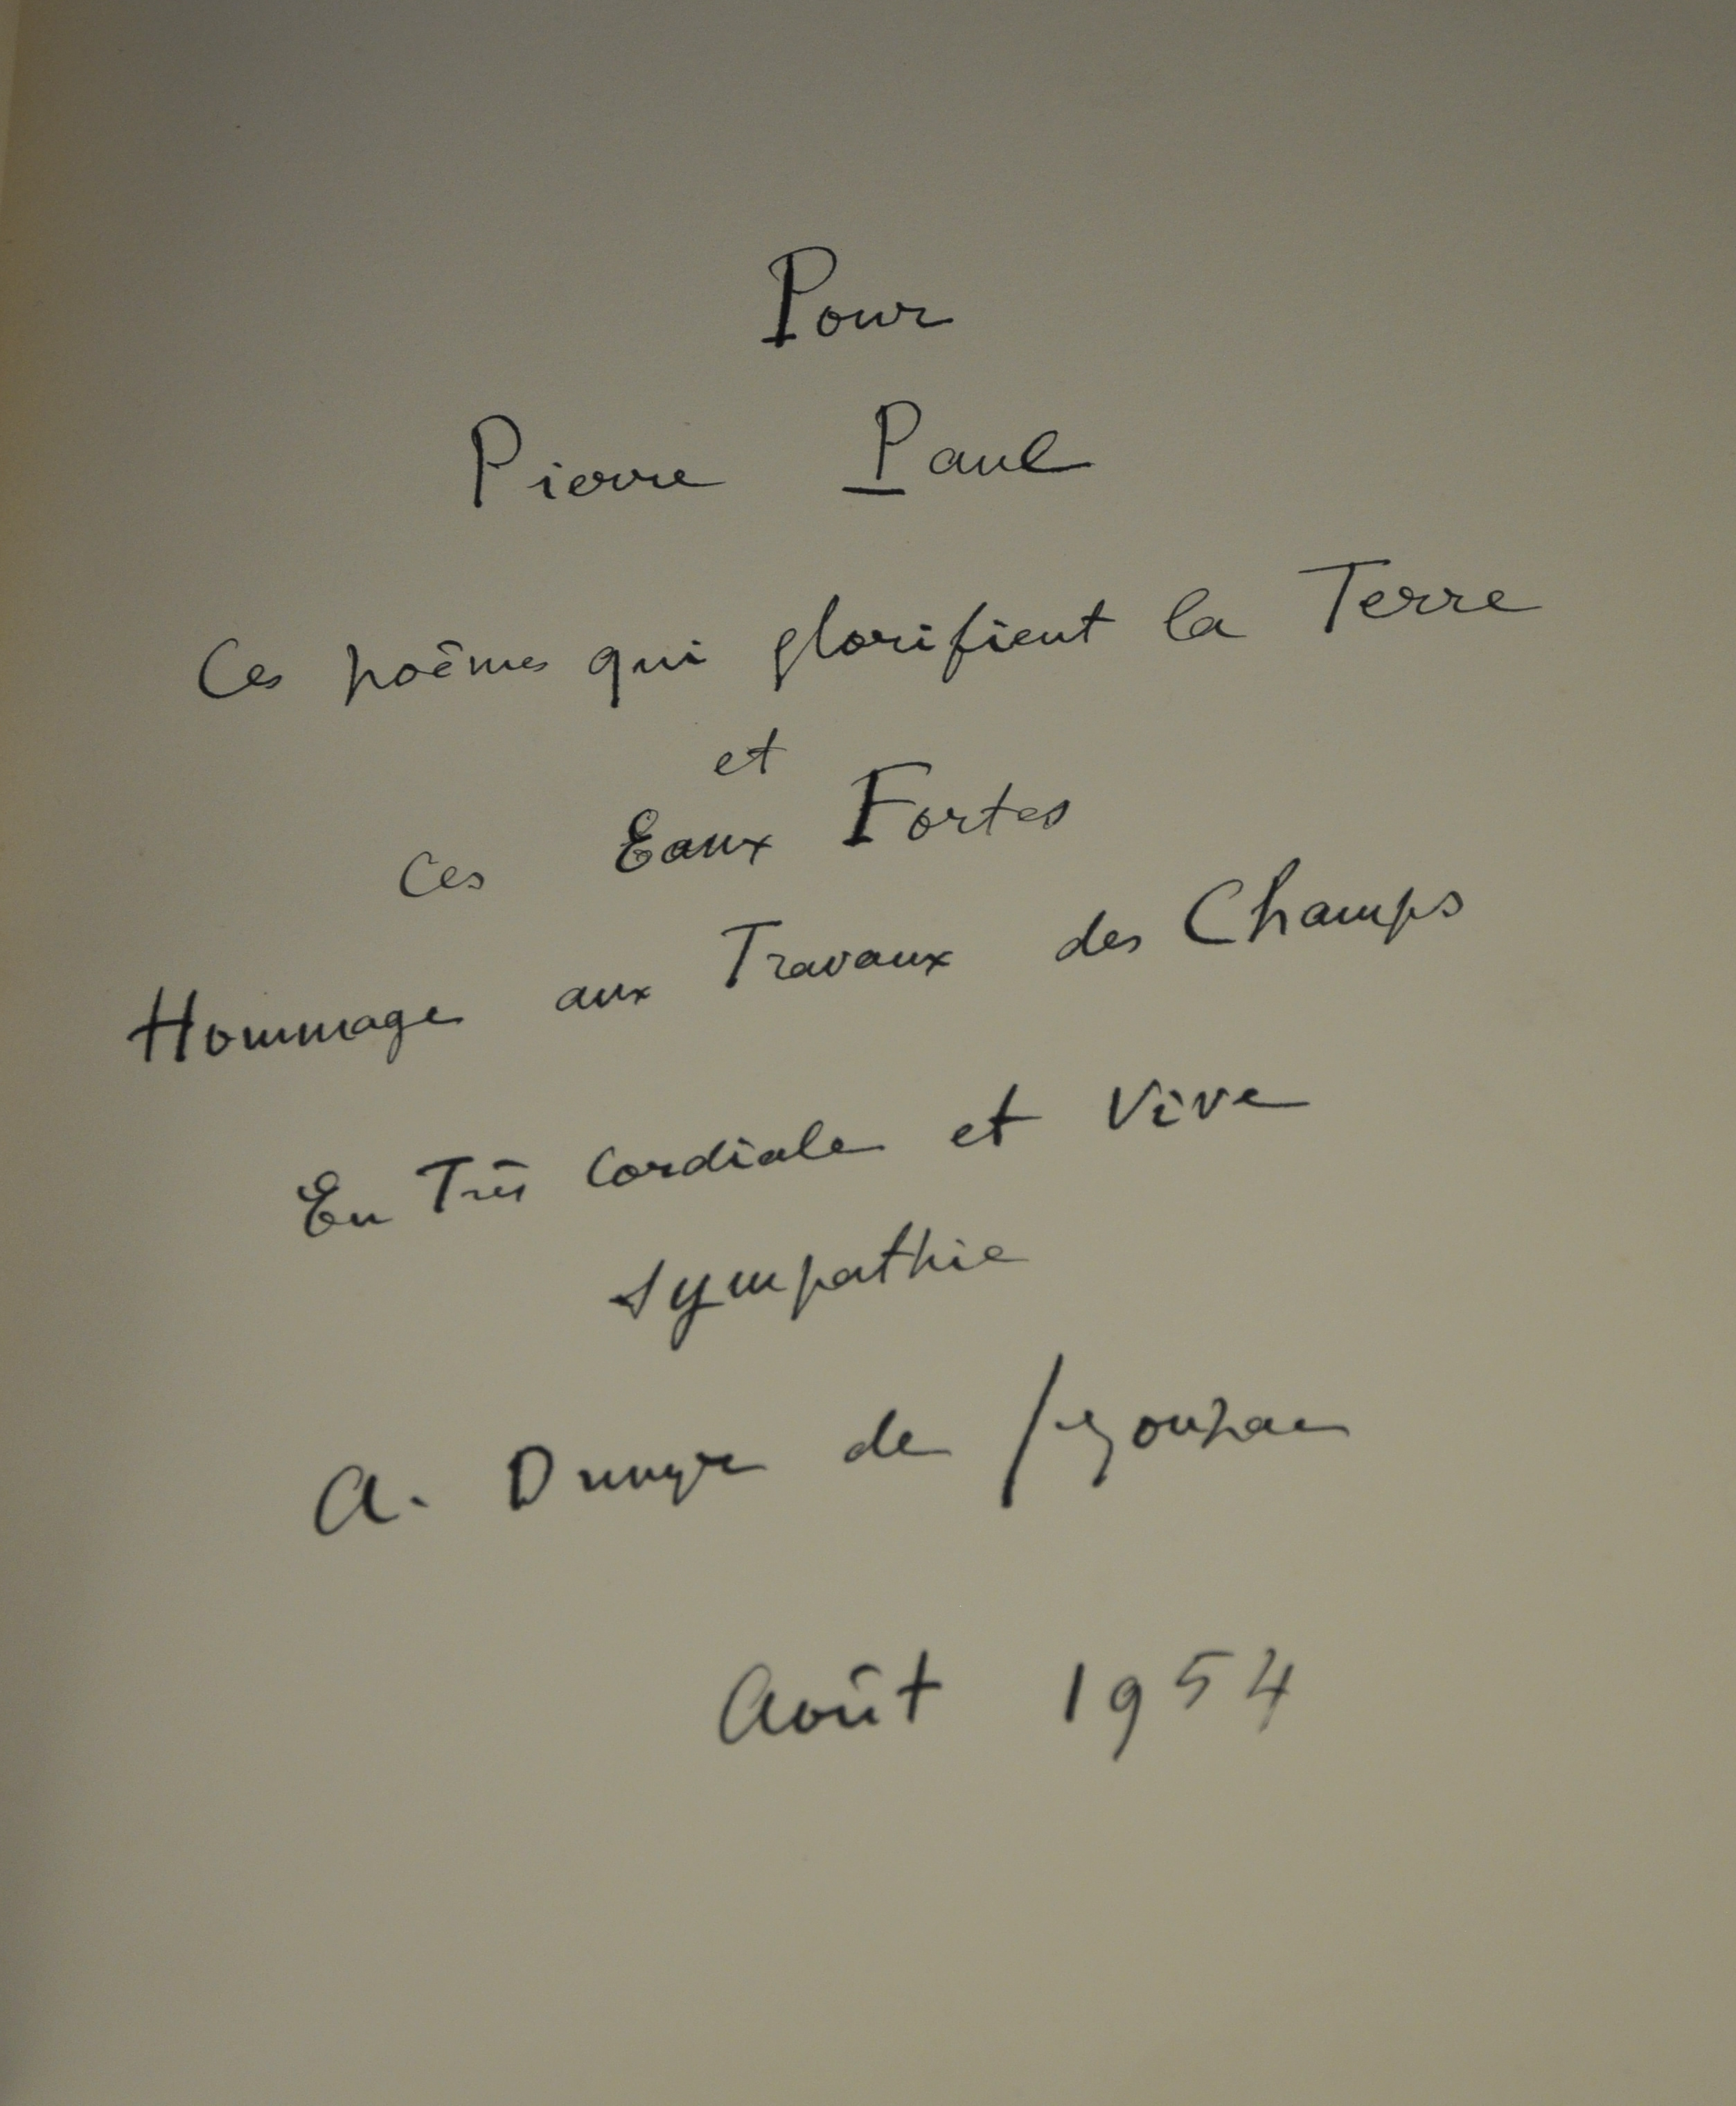 Pour
Pierre Paul
Ces poèmes qui glorifient la Terre
et
ces Eaux Fortes
Hommage aux Travaux des Champs
En Très Cordiale et Vive
sympathie
A. Dunoyer de Segonzac
Août 1954